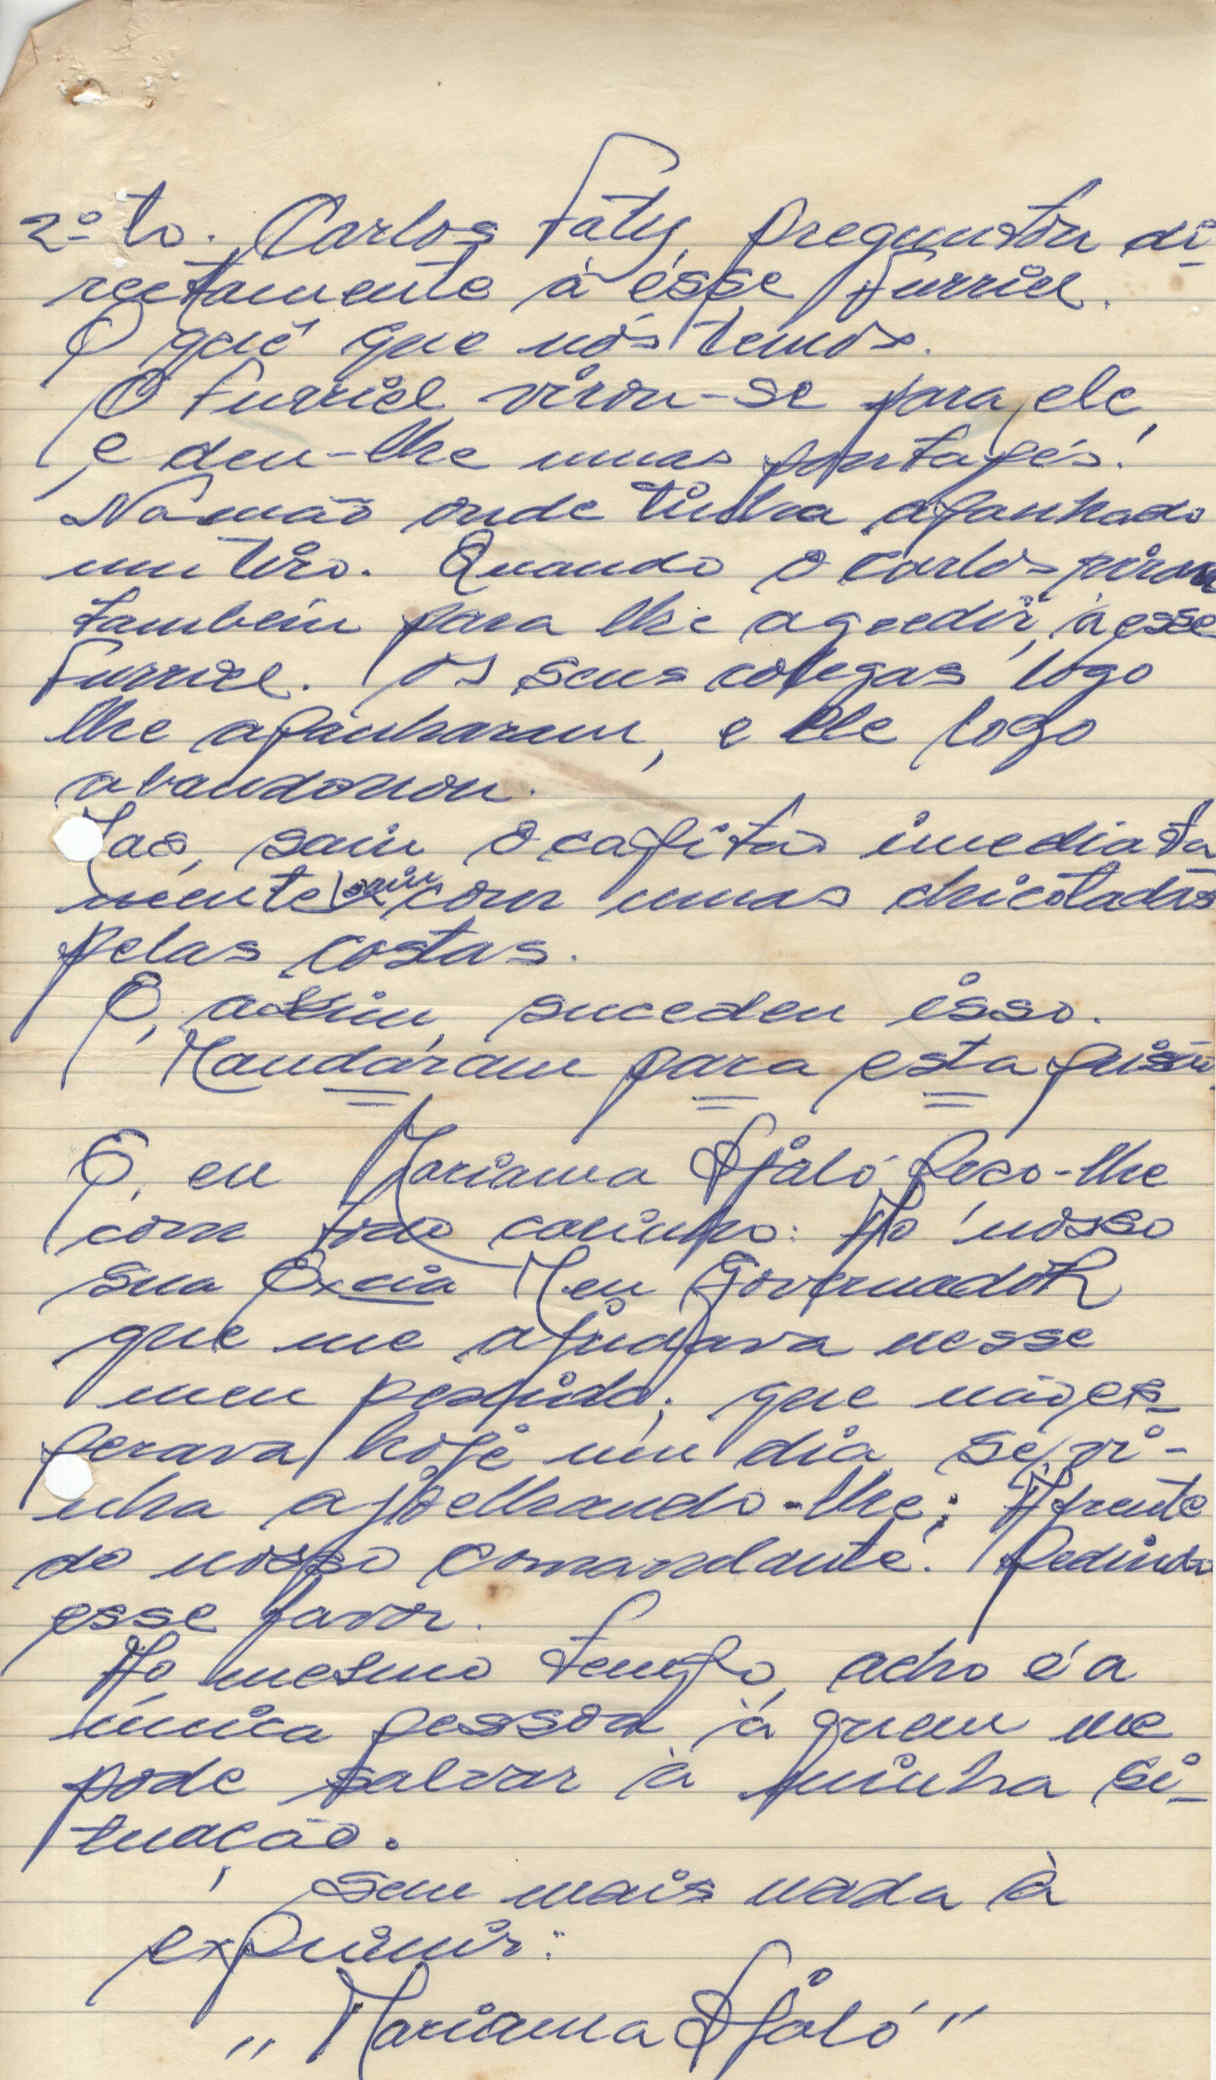 2º to. Carlos Fáty, preguntou di-
rectamente à ésse Furriel.
O quê que nós temos.
O Furriel virou-se para ele,
e deu-lhe umas pontapés.
Na mão onde tinha apanhado
um tiro. Quando o Carlos virou
também para lhe agredir, à esse
Furriel. Os seus colegas logo
lhe apanharam, e ele logo
abandonou.
Mas, saiu o capitão imediata
mente saiu com umas chicotadas
pelas costas.
E, assim, sucedeu isso.
Mandáram para esta prisão.
E, eu Mariama Djaló peço-lhe
com todo carinho: Ao nosso
sua Excia Meu Governadôr
que me ajudava nesse
meu pedido; que não es-
perava hoje um dia se vi-
nha ajoelhando-lhe; A frente
do nosso comandante. Pedindo
esse favor.
Ao mesmo tempo, acho é a
única pessoa à quem me
pode salvar à minha si-
tuação.
Sem mais nada à
exprimir:
"Mariama Djaló"